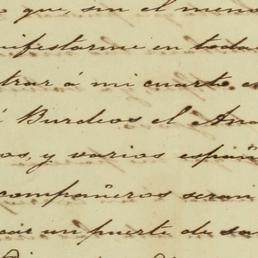 que, sin el menor
manifestarme en toda
entrar á mi cuarto
Burdeos el
os, y varios españ
compañeros seran
un puerto de sa